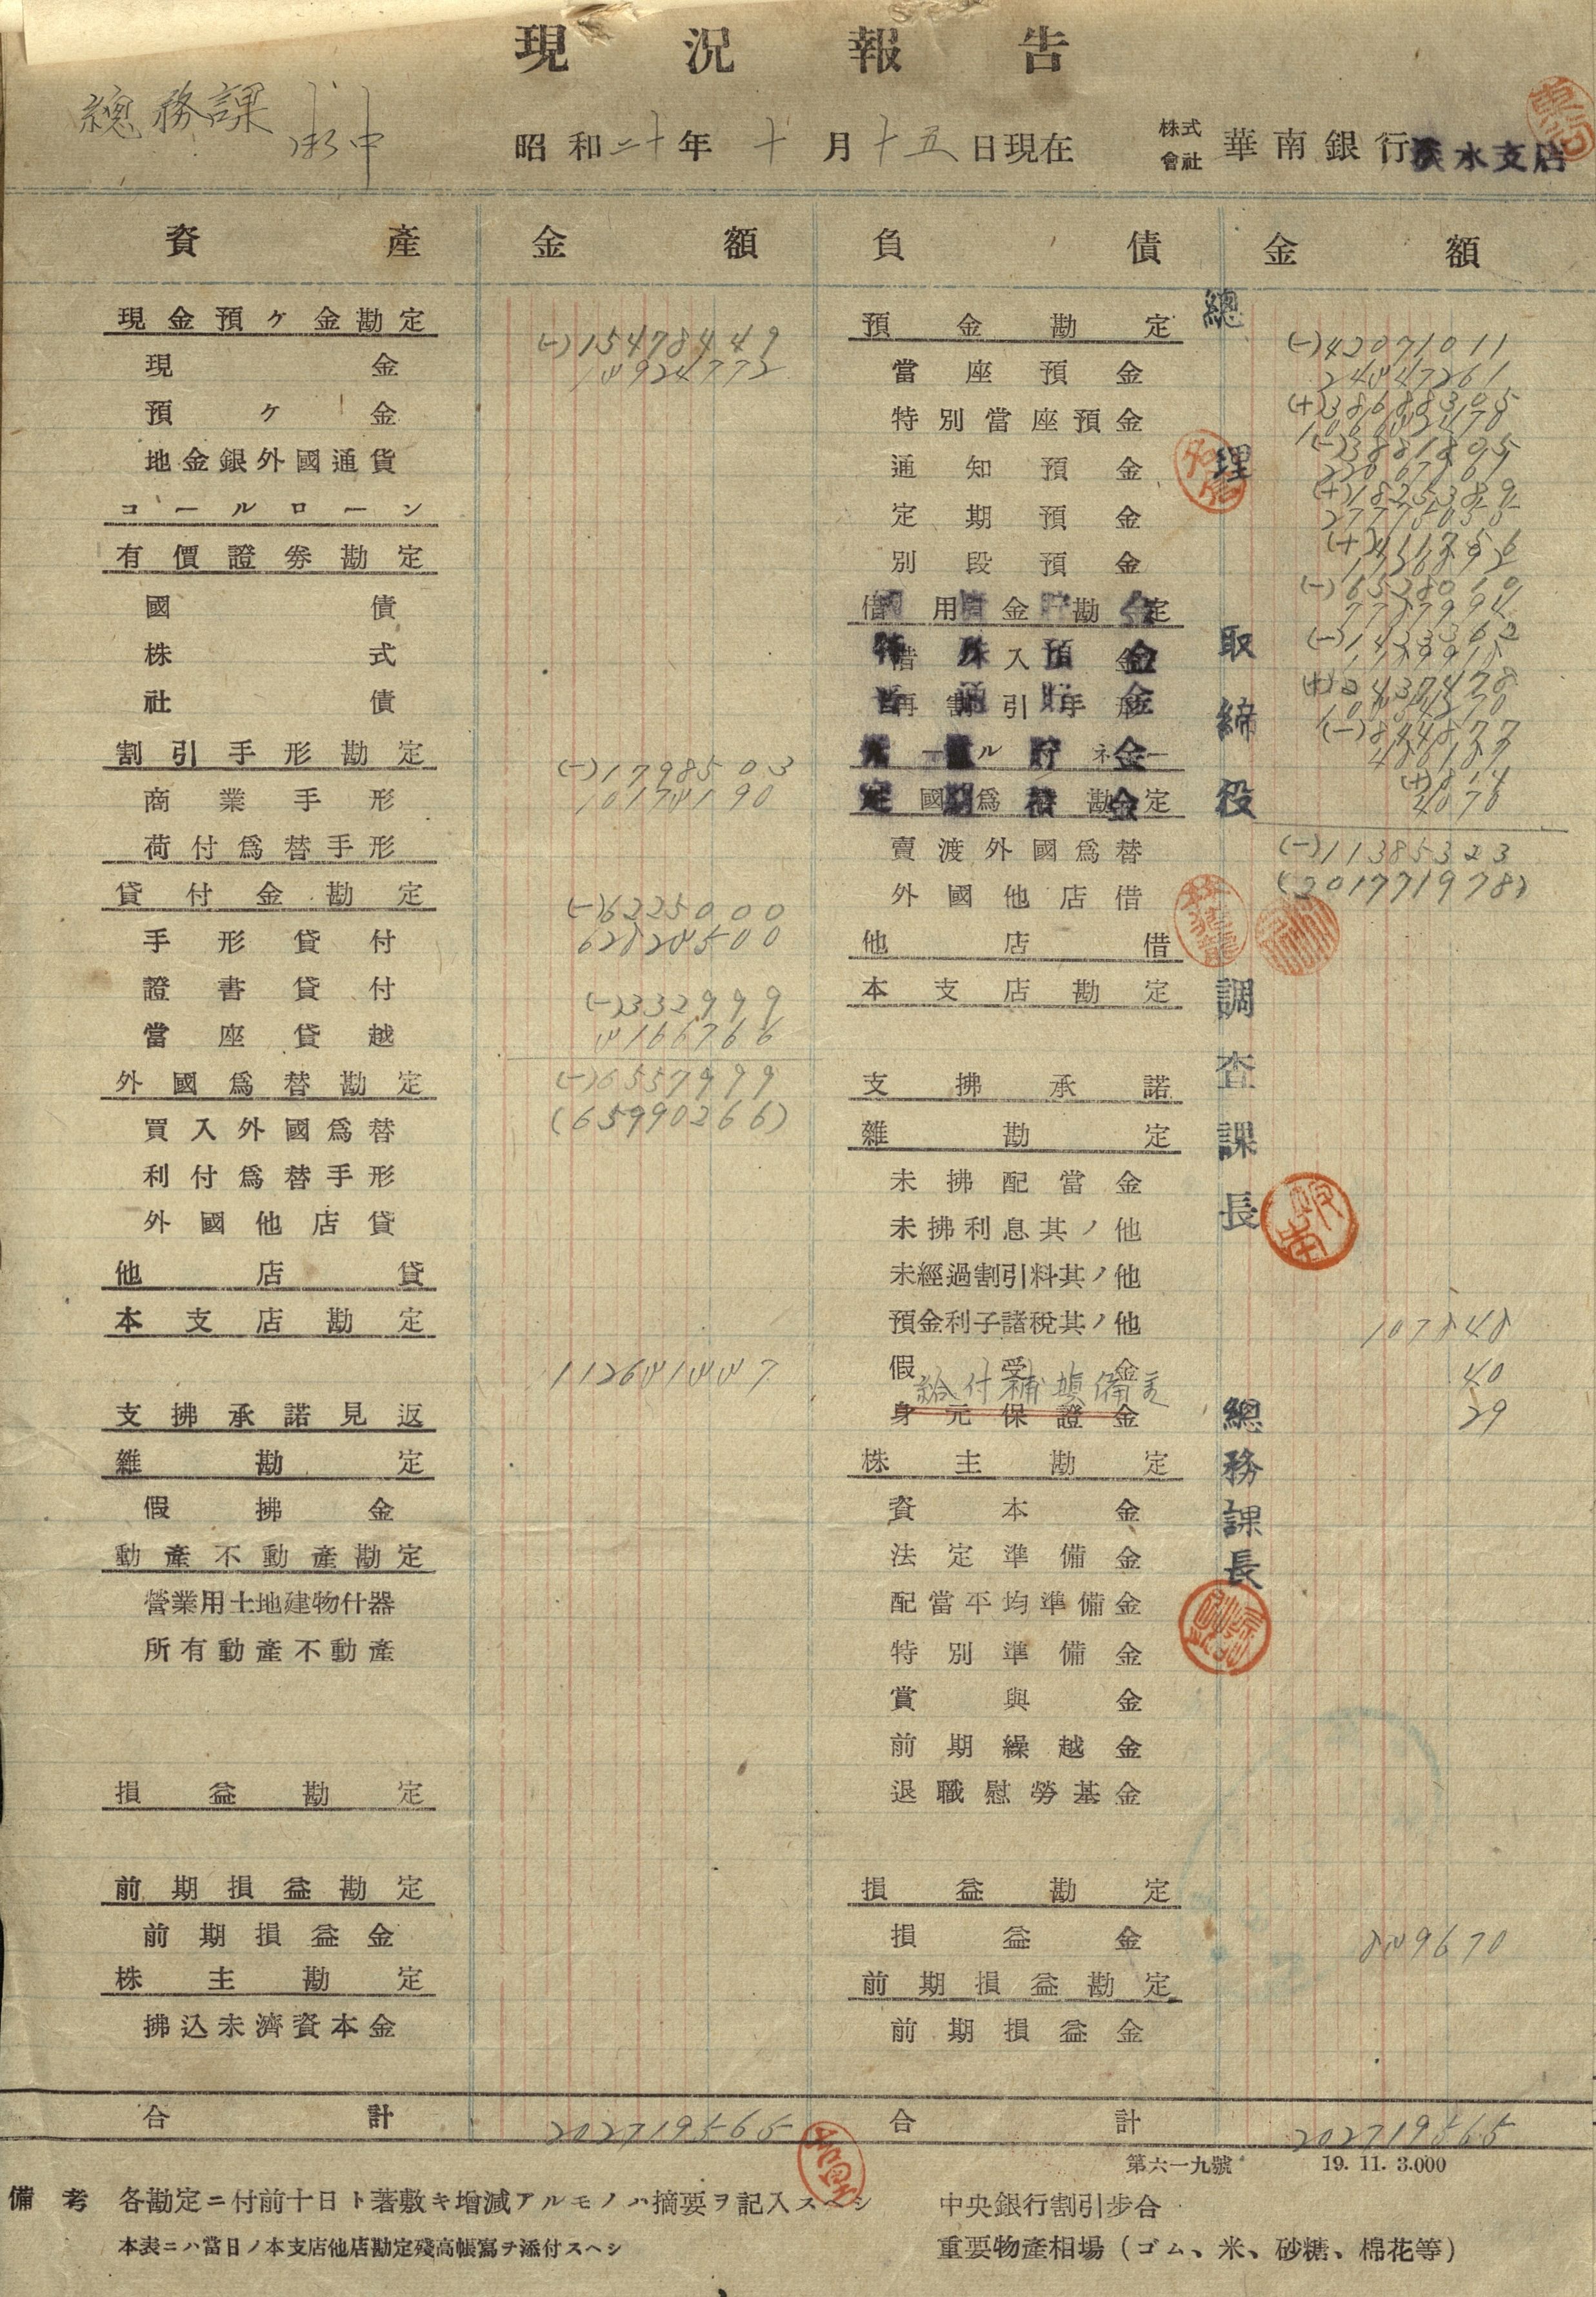 現況報告
總務課
昭和二十年十月十五日現在
株式會社 華南銀行淡水支店
資產 金額 負債 金額
現金預ケ金勘定
(-)15478449
現金 14924772
預ケ金
地金銀外國通貨
コールローン
有價證券勘定
國債
株式
社債
割引手形勘定
(-)1798503
商業手形 10174190
荷付爲替手形
貸付金勘定
(-)6225000
手形貸付 62824500
證書貸付
(-)332999
當座貸越 4166766
外國爲替勘定 (-)6557999
(65990266)
買入外國爲替
利付爲替手形
外國他店貸
他店貸
本支店勘定
112641447
支拂承諾見返
雜勘定
假拂金
動產不動產勘定
營業用土地建物什器
所有動產不動產
損益勘定
前期損益勘定
前期損益金
株主勘定
拂込未濟資本金
合計 202719565
預金勘定
(-)42071011
當座預金 24447261
(+)38688305
特別當座預金
(-)3881895
通知預金
(+)1825389
定期預金
別段預金
借用金勘定
借入金
特殊預金
再割引手形
普通貯金
コールマネー
外國爲替勘定
賣渡外國爲替 (-)11385323
(201771978)
外國他店借
他店借
本支店勘定
支拂承諾
雜勘定
未拂配當金
未拂利息其ノ他
未經過割引料其ノ他
預金利子諸稅其ノ他 107848
假受金 40
給付補塡備金
身元保證金 29
株主勘定
資本金
法定準備金
配當平均準備金
特別準備金
賞與金
前期繰越金
退職慰勞基金
損益勘定
損益金 849670
前期損益勘定
前期損益金
合計 202719565
總理
取締役
調査課長
總務課長
第六一九號 19. 11. 3.000
備考 各勘定ニ付前十日ト著敷キ增減アルモノハ摘要ヲ記入スヘシ
本表ニハ當日ノ本支店他店勘定殘高帳寫ヲ添付スヘシ
中央銀行割引步合
重要物產相場(ゴム、米、砂糖、棉花等)